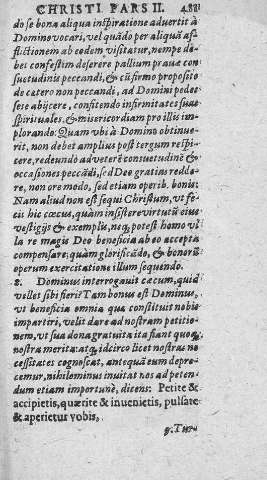 CHRISTI PARS II.
do se bona aliqua inspiratione aduertit à
Domino vocari, vel quãdo per aliquã af-
flictionem ab eodem visitatur, nempe de-
bet confestim deserere pallium prauæ con
suetudinis peccandi, & cũ firmo proposito
de cætero non peccandi, ad Domini pedes
sese abijcere, confitendo infirmitates suas
spirituales, & misericordiam pro illis im-
plorando: Quam vbi à Domino obtinue-
rit, non debet amplius post tergum respi-
cere, redeundo ad veterẽ consuetudinẽ &
occasiones peccãdi, sed Deo gratias redde-
re, non ore modo, sed etiam operib. bonis:
Nam aliud non est sequi Christum, vt fe-
cit hic cæcus, quàm insistere virtutũ eius
vestigijs & exemplis, neq; potest homo vl-
la re magis Deo beneficia ab eo accepta
compensare; quàm glorificãdo, & bonorũ
operum exercitatione illum sequendo.
2. Dominus interrogauit cæcum, quid
vellet sibi fieri? Tam bonus est Dominus,
vt beneficia omnia quæ constituit nobis
impartiri, velit dare ad nostram petitio-
nem, vt sua dona gratuita ita fiant quoq;
nostra merita: atq; idcirco licet nostras ne
cessitates cognoscat, antequã eum depre-
cemur, nihilominus inuitat nos ad peten-
dum etiam importunè, dicens: Petite &
accipietis, quærite & inuenietis, pulsate
& aperietur vobis.
3. Tum